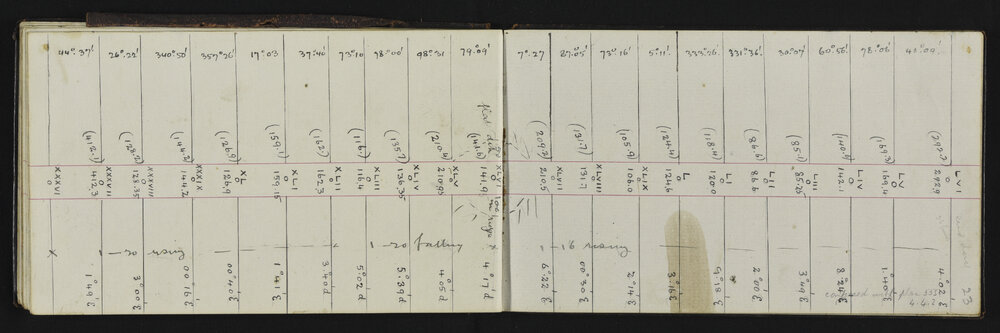 44°.37'
26°.22'
340°.50'
357°.26'
17°.03
37°.40
73°.10
98°.00'
98°.31
79°.09'
7°.27
27°.05'
73°.16'
5°.11'
333°.26
331°.36'
30°.07'
60°.56'
78°.06'
41°.09'
(412.1)
(128.2)
(144.2)
(126.9)
(159.1)
(162.)
(116.)
(135.7)
(210.4)
(141.6)
(209.2)
(131.7)
(105.9)
(124.4)
(118.4)
(86.6)
(85.1)
(140.9)
(169.3)
(292.7)
XXXVI
412.3
XXXVII
128.35
XXXVIII
144.2
XXXIX
126.9
XL
159.15
XLI
162.3
XLII
116.4
XLIII
136.35
XLIV
210.95
XLV
141.9
XLVI
210.5
XLVII
131.7
XLVIII
106.0
XLIX
124.6
L
120.0
LI
86.6
LII
85.25
LIII
142.1
LIV
169.4
LV
292.9
LVI
x 1 — 20 rising
1 — 20 falling x
1 — 16 rising
1°.49'
3°.00'
00°.16'
00°.40'
1°.41'
3°.40 d
5°.02 d
5°.39 d
4°.05 d
4°.17 d
6°.22
00°.30
2°.14
3°.16
5°.18
2°.00
3°.49
8°.24
1°.40
4°.02
compared with plan 335
4.4.2
23